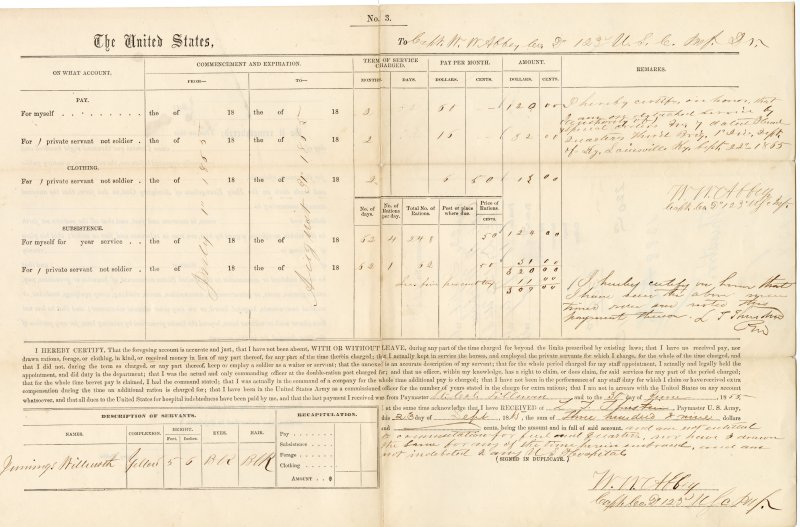 No. 3.
The United States,
To Capt. W. W. Abbey Co. D 123d U. S. C. Inf. Dr.
ON WHAT ACCOUNT.
COMMENCEMENT AND EXPIRATION.
FROM—
TO—
TERM OF SERVICE CHARGED.
MONTHS.
DAYS.
PAY PER MONTH.
DOLLARS.
CENTS.
AMOUNT.
DOLLARS.
CENTS.
REMARKS.
PAY.
For myself . . . . . . . . . the of 18 the of 18 2 60 — 120 00
For 1 private servant not soldier . the of 18 the of 18 2 16 — 32 00
CLOTHING.
For 1 private servant not soldier . the of 18 the of 18 2 6 50 13 00
No. of days.
No. of Rations per day.
Total No. of Rations.
Post or place where due.
Price of Rations.
CENTS.
SUBSISTENCE.
For myself for year service . . the of 18 the of 18 62 4 248 50 124 00
For 1 private servant not soldier . the of 18 the of 18 62 1 62 50 31 00
320 00
Less five per cent tax 11 00
309 00
July 1st 1865
August 31 1865
I hereby certify on honor, that
Quarters Third Brig. 1st Div. Dept.
of Ky. Louisville Ky. Sept. 22d 1865
W. W. Abbey
Capt. Co. D 123 U S C Inf.
I hereby certify on honor that
I have seen the above
payment thereon.
I HEREBY CERTIFY, That the foregoing account is accurate and just, that I have not been absent, WITH OR WITHOUT LEAVE, during any part of the time charged for beyond the limits prescribed by existing laws; that I have not received pay, nor
drawn rations, forage, or clothing, in kind, or received money in lieu of any part thereof, for any part of the time therein charged; that I actually kept in service the horses, and employed the private servants for which I charge, for the whole of the time charged, and
that I did not, during the term so charged, or any part thereof, keep or employ a soldier as a waiter or servant; that the annexed is an accurate description of my servant; that for the whole period charged for my staff appointment, I actually and legally held the
appointment, and did duty in the department; that I was the actual and only commanding officer at the double-ration post charged for; and that no officer, within my knowledge, has a right to claim, or does claim, for said services for any part of the period charged;
that for the whole time brevet pay is charged, I had the command stated; that I was actually in the command of a company for the whole time additional pay is charged; that I have not been in the performance of any staff duty for which I claim or have received extra
compensation during the time an additional ration is charged for; that I have been in the United States Army as a commissioned officer for the number of years stated in the charge for extra rations; that I am not in arrears with the United States on any account
whatsoever, and that all dues to the United States for hospital indebtedness have been paid by me, and that the last payment I received was from Paymaster and to the 30 of June 1865
I at the same time acknowledge that I have RECEIVED of Paymaster U. S. Army,
this 23 day of Sept. 18 the sum of three hundred & nine dollars
and cents, being the amount and in full of said account. and am not entitled
to commutation for fuel and quarters, nor have I drawn
the same for any of the time herein embraced, and am
not indebted to any U. S. Hospital
(SIGNED IN DUPLICATE.)
W. W. Abbey
Capt. Co. D 123d U S C Inf.
DESCRIPTION OF SERVANTS.
NAMES.
COMPLEXION.
HEIGHT.
Feet.
Inches.
EYES.
HAIR.
Jennings Yellow 5 6 Blk Blk
RECAPITULATION.
Pay - - - -
Subsistence - -
Forage - - -
Clothing - - -
AMOUNT . . $